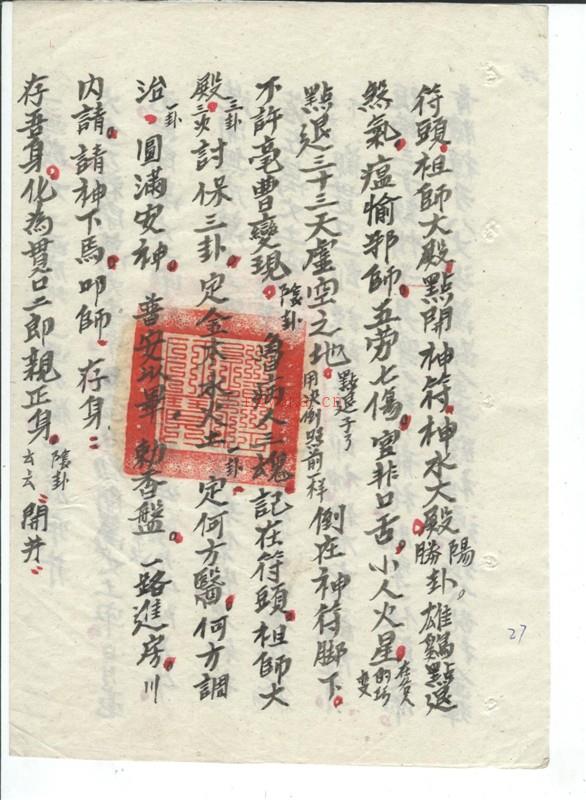 符頭祖師大殿點開神符神水大殿陽勝卦。雄鷄點退
煞氣瘟㾾邪師五劳七傷官非口舌小人火星
點退三十三天虛空之地用決倒照前一样點退于了倒在神符脚下
不許毫曹變現陰卦病人三魂記在符頭祖師大
殿三卦三次討保三卦定金木水火土一卦定何方醫何方調
治一卦圓滿安神 普安以畢 勅香盤 一路進房川
內請請神下馬叩師存身
存吾身化為貫口二郎親正身陰卦云云開井
27